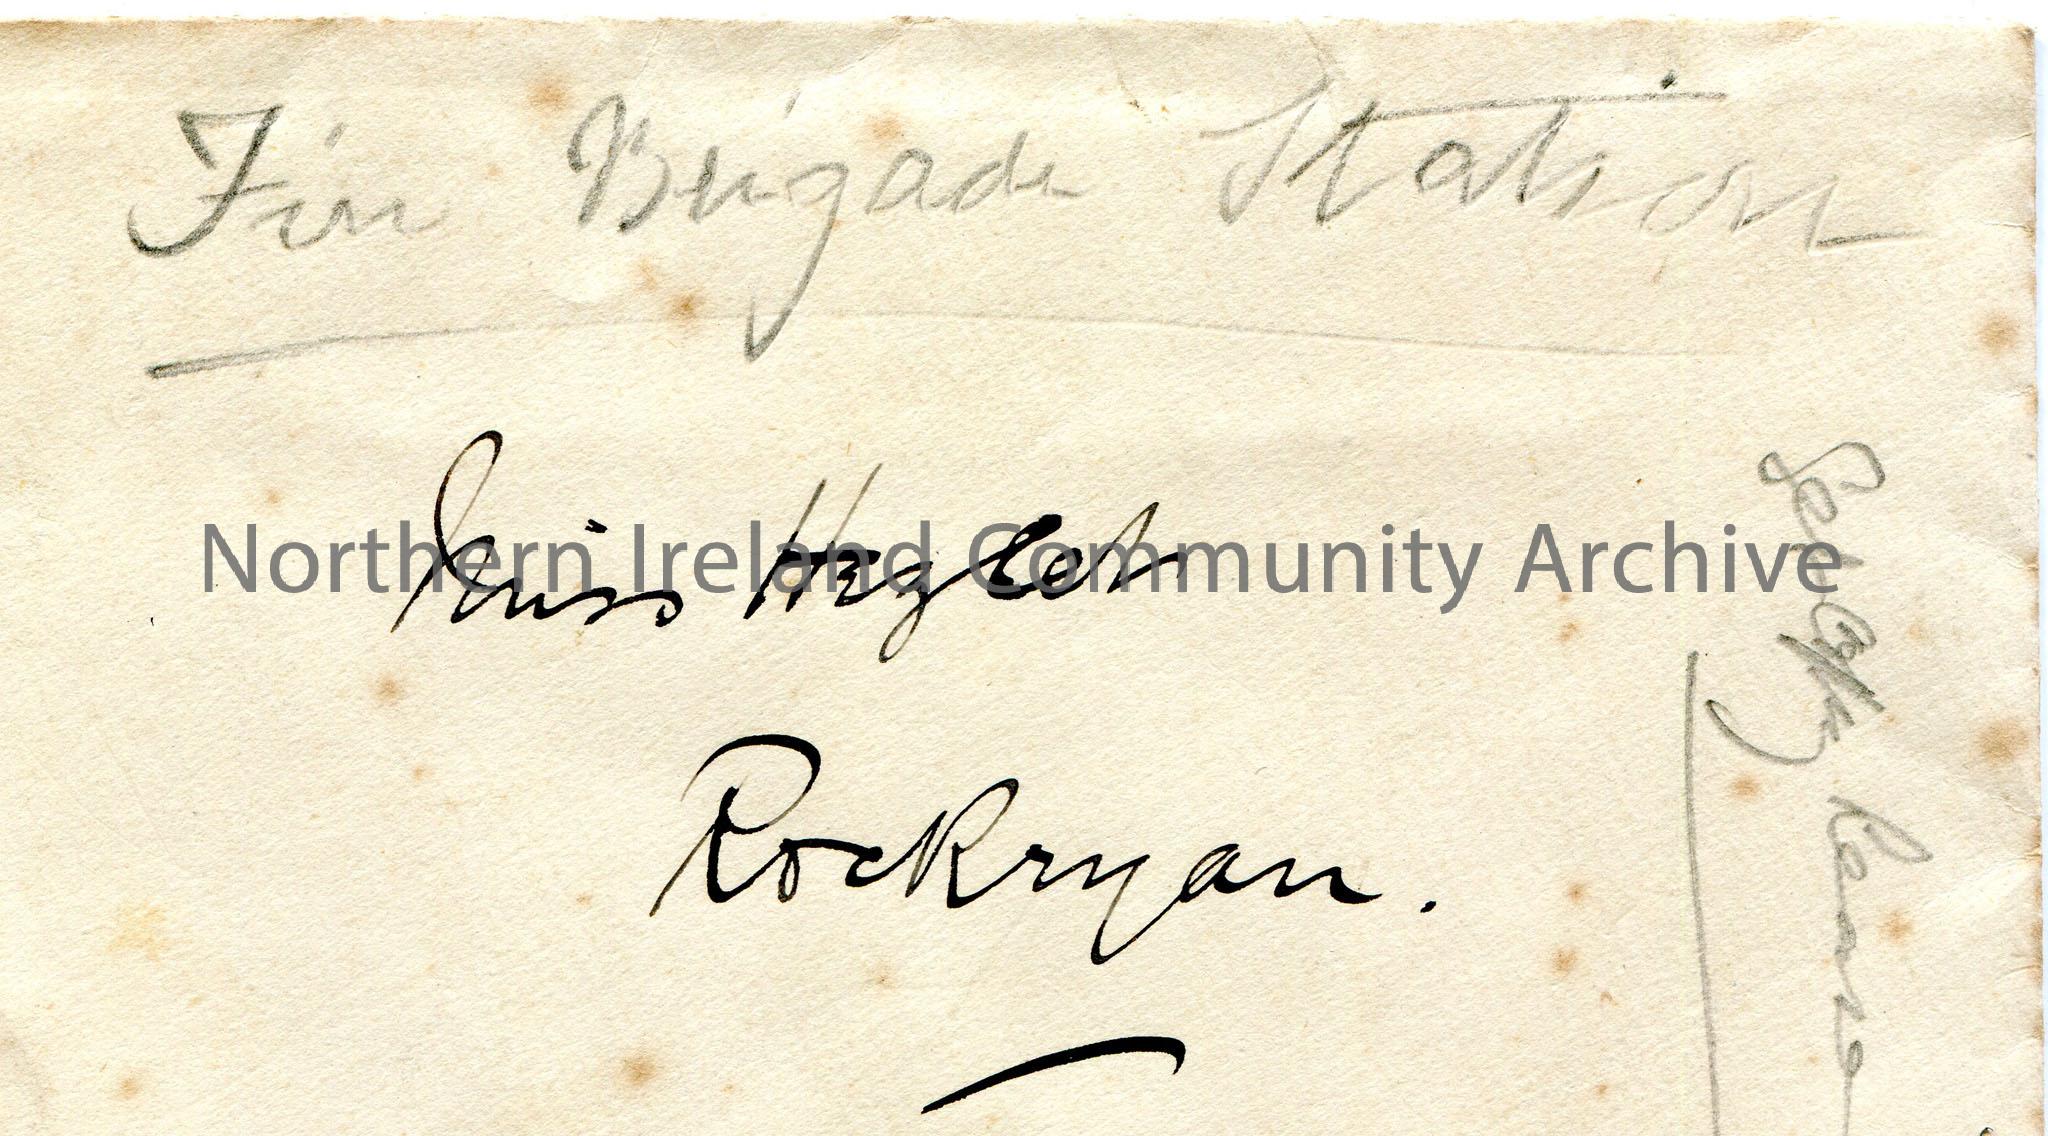 Fire Brigade Station
Miss Hezlet
Rockryan.
Northern Ireland Community Archive